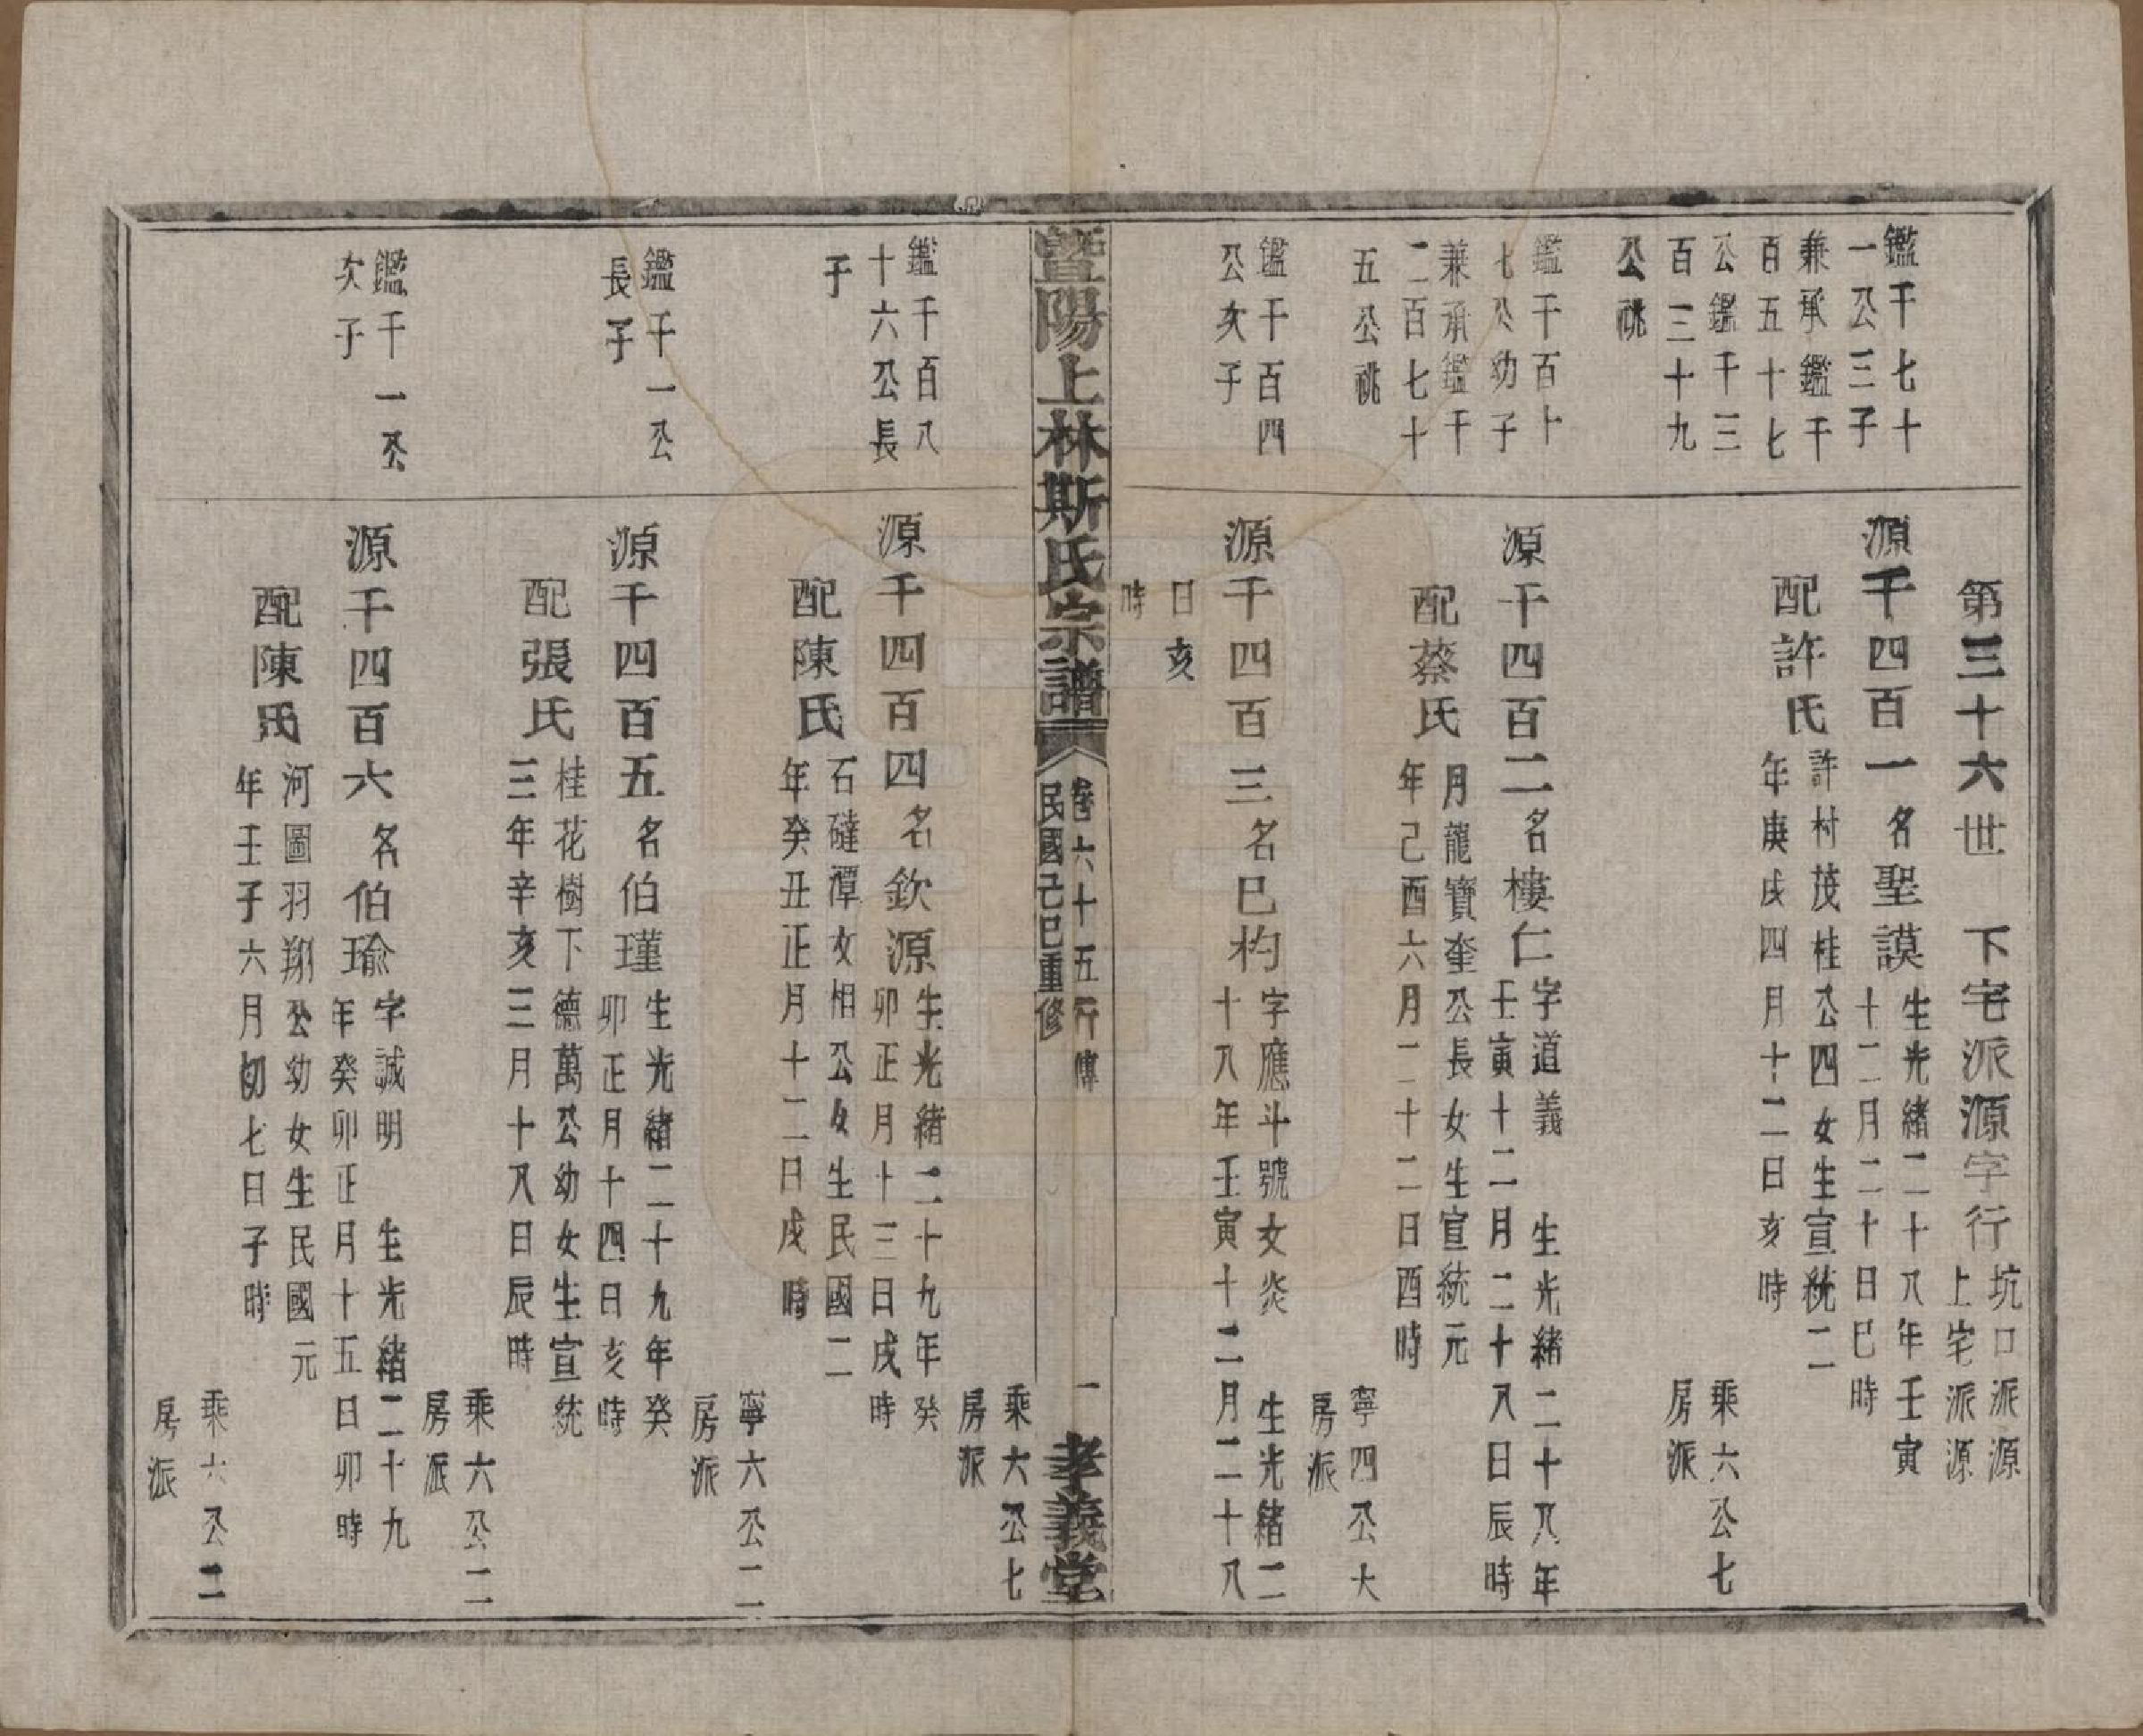 第三十六世　下宅派源字行
坑口派源
上宅派源
鑑千七十
一公三子
兼承鑑千
百五十七
公鑑千三
百三十九
公祧
源千四百一
名聖謨
生光緒二十八年壬寅
十二月二十日巳時
配許氏
許村茂桂公四女生宣統二
年庚戌四月十二日亥時
乘六公七
房派
鑑千百十
七公幼子
兼承鑑千
二百七十
五公祧
源千四百二
名樓仁
字道義　生光緒二十八年
壬寅十二月二十八日辰時
配蔡氏
月龍寶奎公長女生宣統元
年己酉六月二十二日酉時
寧四公大
房派
鑑千百四
公次子
源千四百三
名巳杓
字應斗號女炎　生光緒二
十八年壬寅十二月二十八
日亥
時
暨陽上林斯氏宗譜
卷六十五行傳
民國己巳重修
一
孝義堂
乘六公七
房派
鑑千百八
十六公長
子
源千四百四
名欽源
生光緒二十九年癸
卯正月十三日戌時
配陳氏
石磋潭女相公女生民國二
年癸丑正月十二日戌時
寧六公二
房派
鑑千一公
長子
源千四百五
名伯瑾
生光緒二十九年癸
卯正月十四日亥時
配張氏
桂花樹下德萬公幼女生宣統
三年辛亥三月十八日辰時
乘六公二
房派
鑑千一公
次子
源千四百六
名伯瑜
字誠明　生光緒二十九
年癸卯正月十五日卯時
配陳氏
河圖羽翔公幼女生民國元
年壬子六月初七日子時
乘六公二
房派